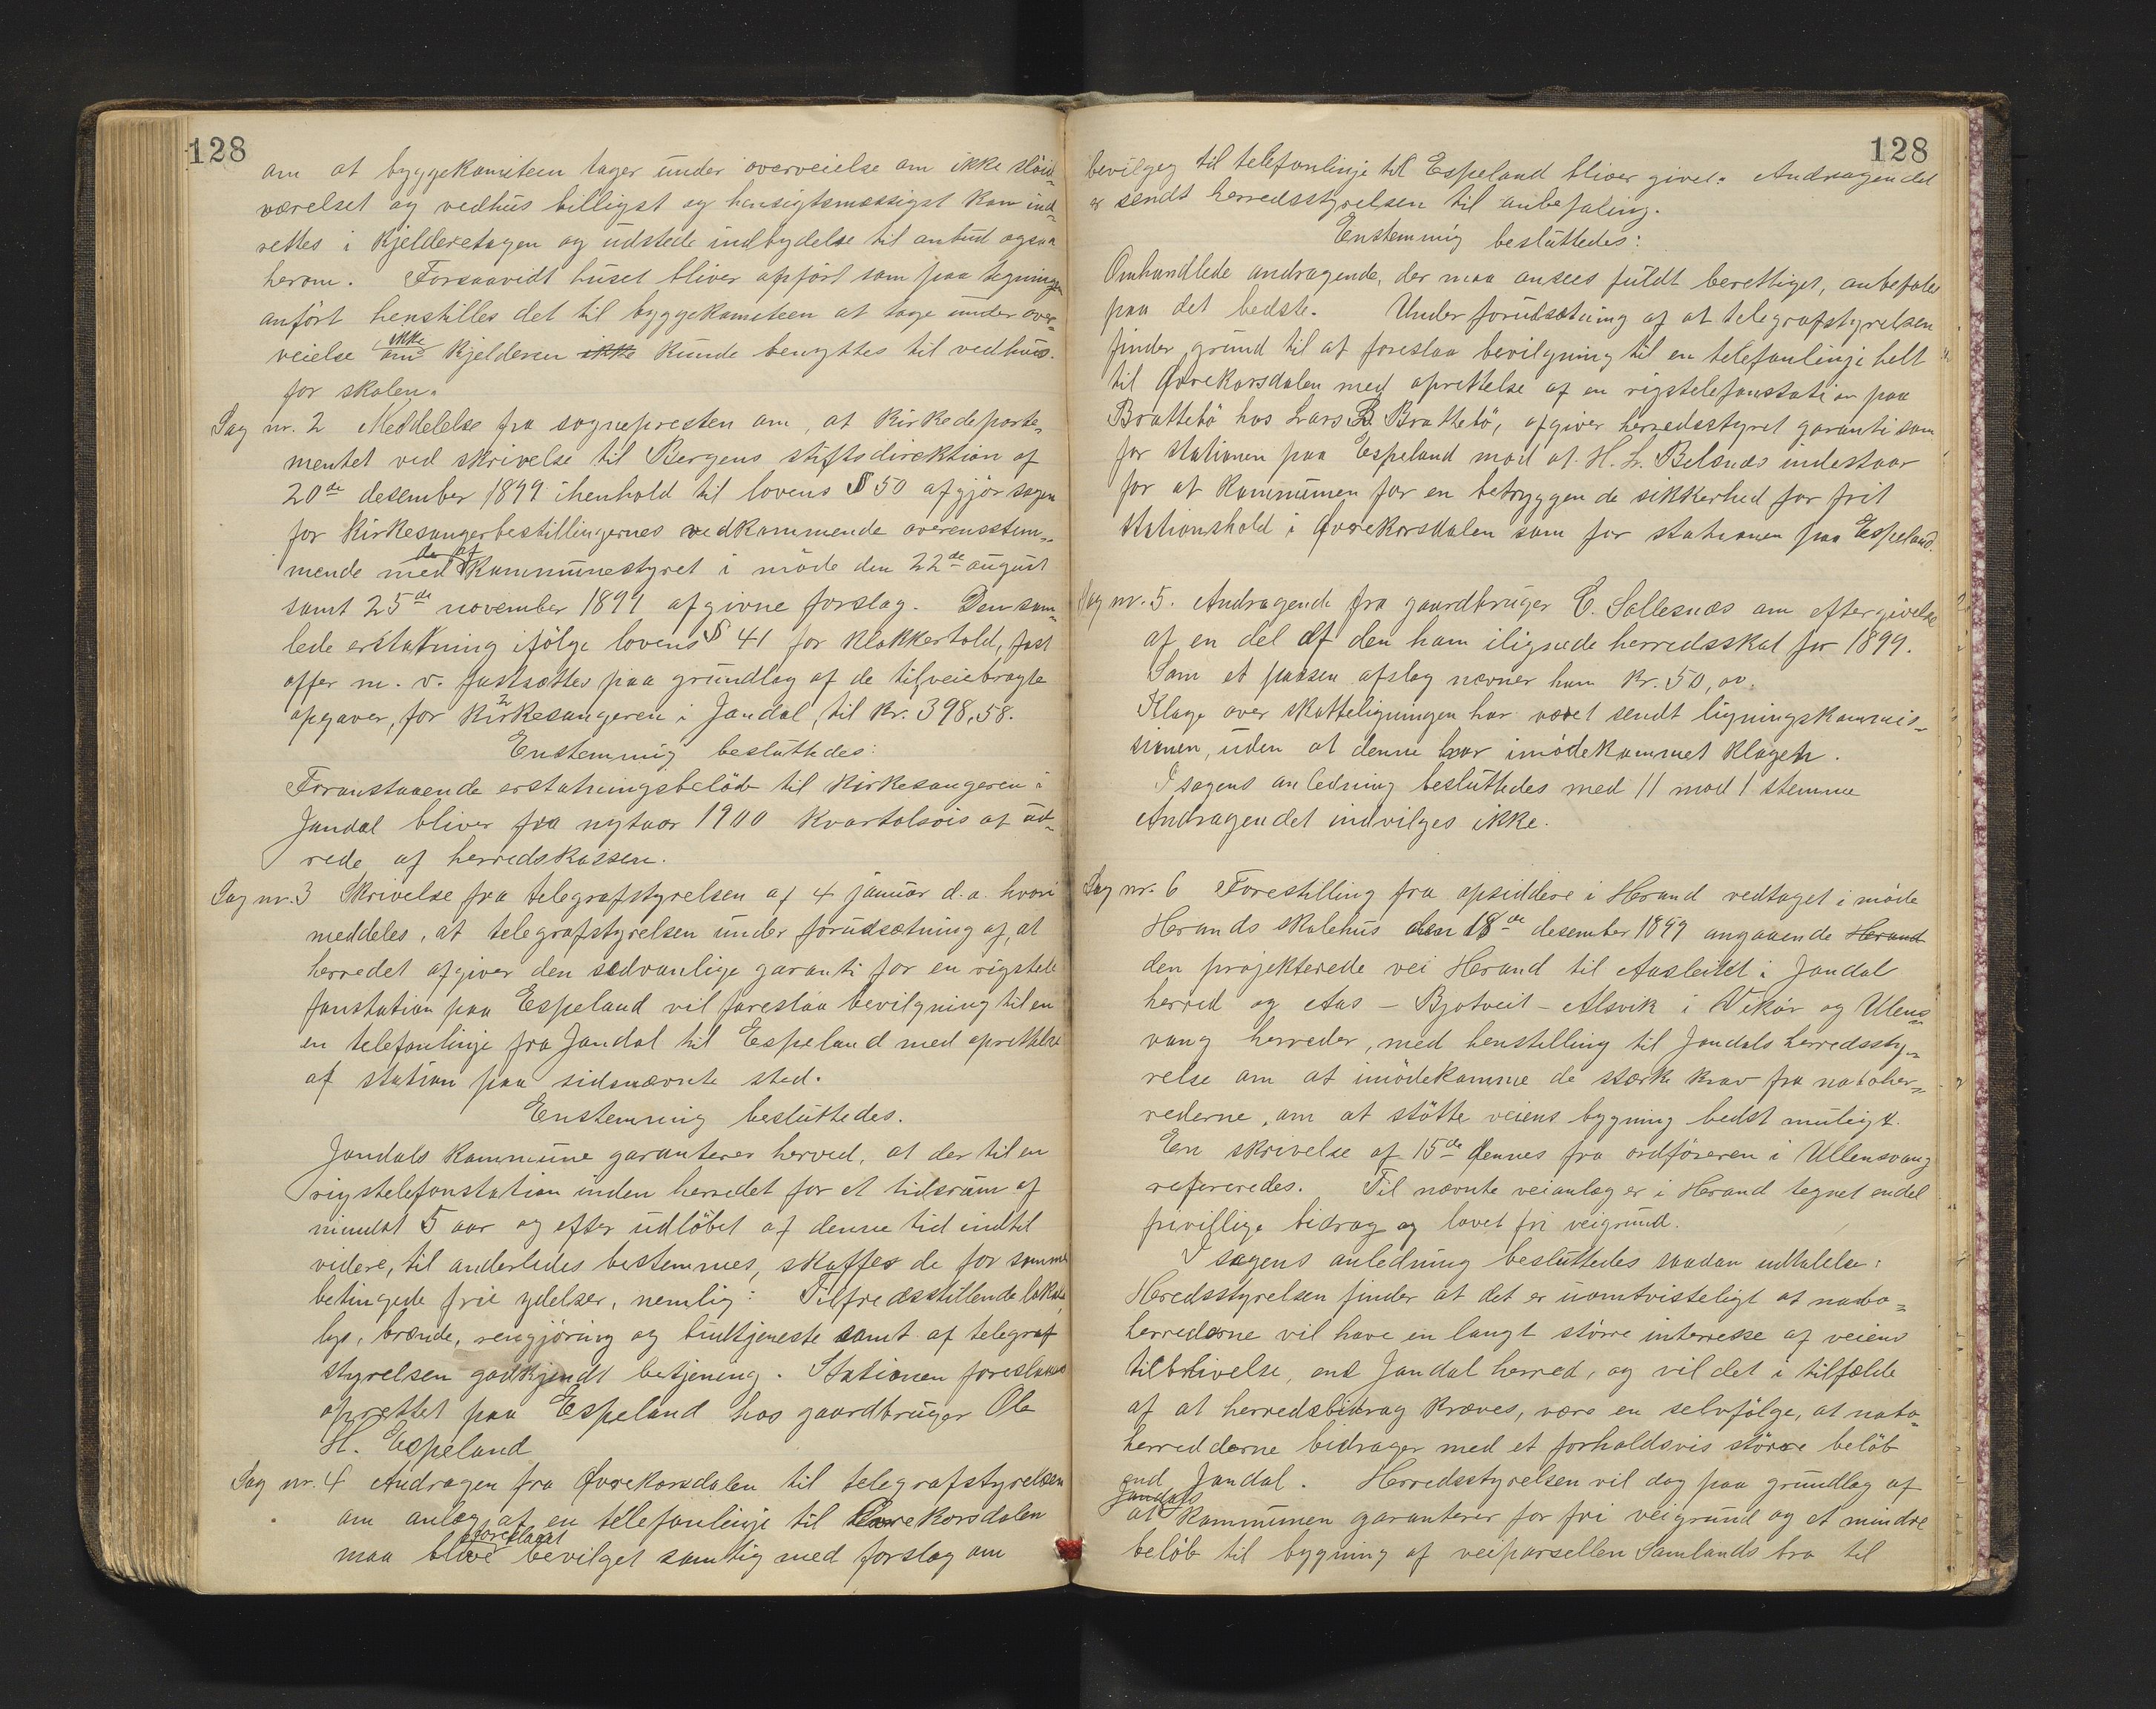 128
om at byggekomiteen tager under overveielse om ikke sløid-
værelset og vedhus billigst og hensigtsmæssigst kan ind-
rettes i kjelderetagen og udstede indbydelse til anbud ogsaa
herom. Forsaavidt huset bliver opført som paa tegningen
anført henstilles det til byggekomiteen at tage under over-
veielse om ikke kjelderen ikke kunde benyttes til vedhus
for skolen.
Sag nr. 2 Meddelelse fra sognepresten om, at Kirkedeparte-
mentet ved skrivelse til Bergens stiftsdirektion af
20de desember 1899 i henhold til lovens § 50 afgjør sagen
for kirkesangerbestillingernes vedkommende overensstem-
mende med de af kommunestyret i møde den 22de august
samt 25de november 1891 afgivne forslag. Den sam-
lede erstatning ifølge lovens § 41 for klokkertold, fast
offer m. v. fastsættes paa grundlag af de tilveiebragte
opgaver, for kirkesangeren i Jondal, til kr. 398,58.
Enstemmig besluttedes:
Foranstaaende erstatningsbeløb til kirkesangeren i
Jondal bliver fra nytaar 1900 kvartalsvis at ud-
rede af herredskassen.
Sag nr. 3 Skrivelse fra telegrafstyrelsen af 4 januar d. a. hvori
meddeles, at telegrafstyrelsen under forudsætning af, at
herredet afgiver den sedvanlige garanti for en rigstele
fonstation paa Espeland vil foreslaa bevilgning til en
en telefonlinje fra Jondal til Espeland med oprettelse
af station paa sidsnævnte sted.
Enstemmig besluttedes.
Jondals kommune garanterer herved, at der til en
rigstelefonstation inden herredet for et tidsrum af
mindst 5 aar og efter udløbet af denne tid indtil
videre, til anderledes bestemmes, skaffes de for samme
betingede frie ydelser, nemlig: Tilfredsstillende lokale,
lys, brænde, rengjøring og budtjeneste samt af telegraf
styrelsen godkjendt betjening. Stationen foreslaaes
oprettet paa Espeland hos gaardbruger Ola
H. Espeland
Sag nr. 4 Andragen fra Øvrekorsdalen til telegrafstyrelsen
om anlæg af en telefonlinje til Øvrekorsdalen
maa blive foreslaaet bevilget samtig med forslag om
128
bevilgeg til telefonlinje til Espeland bliver givet. Andragendet
er sendt herredsstyrelsen til anbefaling.
Enstemmig besluttedes:
Omhandlede andragende, der maa ansees fuldt berettiget, anbefales
paa det bedste. Under forudsætning af at telegrafstyrelsen
finder grund til at foreslaa bevilgning til en telefonlinje helt
til Øvrekorsdalen med oprettelse af en rigstelefonstation paa
Brattebø hos Lars B Brattebø, afgiver herredsstyret garanti som
for stationen paa Espeland mod at H. L. Belsnæs indestaar
for at kommunen faar en betryggende sikkerhed for frit
stationshold i Øvrekorsdalen som for stationen paa Espeland.
Sag nr. 5. Andragende fra gaardbruger E. Sollesnæs om eftergivelse
af en del af den ham ilignede herredsskat for 1899.
Som et passen afslag nævner ham kr. 50,00.
Klage over skatteligningen har været sendt ligningskommis-
sionen, uden at denne har imødekommet klagen.
I sagens anledning besluttedes med 11 mod 1 stemme
Andragendet indvilges ikke.
Sag nr. 6 Forestilling fra opsiddere i Herand vedtaget i møde
Herands skolehus den 18de desember 1899 angaaende Herand
den projekterede vei Herand til Aasleitet i Jondal
herred og Aas – Bjotveit – Alsvik i Vikør og Ulens-
vang herreder, med henstilling til Jondals herredssty-
relse om at imødekomme de stærke krav fra naboher-
rederne, om at støtte veiens bygning bedst muligt.
En skrivelse af 15de dennes fra ordføreren i Ullensvang
refereredes. Til nævnte veianlæg er i Herand tegnet endel
frivillige bidrag og lovet fri veigrund.
I sagens anledning besluttedes saadan udtalelse:
Heredsstyrelsen finder at det er uomtvisteligt at nabo-
herrederne vil have en langt større interesse af veiens
tilblivelse, end Jondal herred, og vil det i tilfælde
af at herredsbidrag kræves, være en selvfølge, at nabo-
herredderne bidrager med et forholdsvis større beløb
end Jondal. Herredsstyrelsen vil dog paa grundlag af
at Jondals kommunen garanterer for fri veigrund og et mindre
beløb til bygning af veiparsellen Samlands bro til